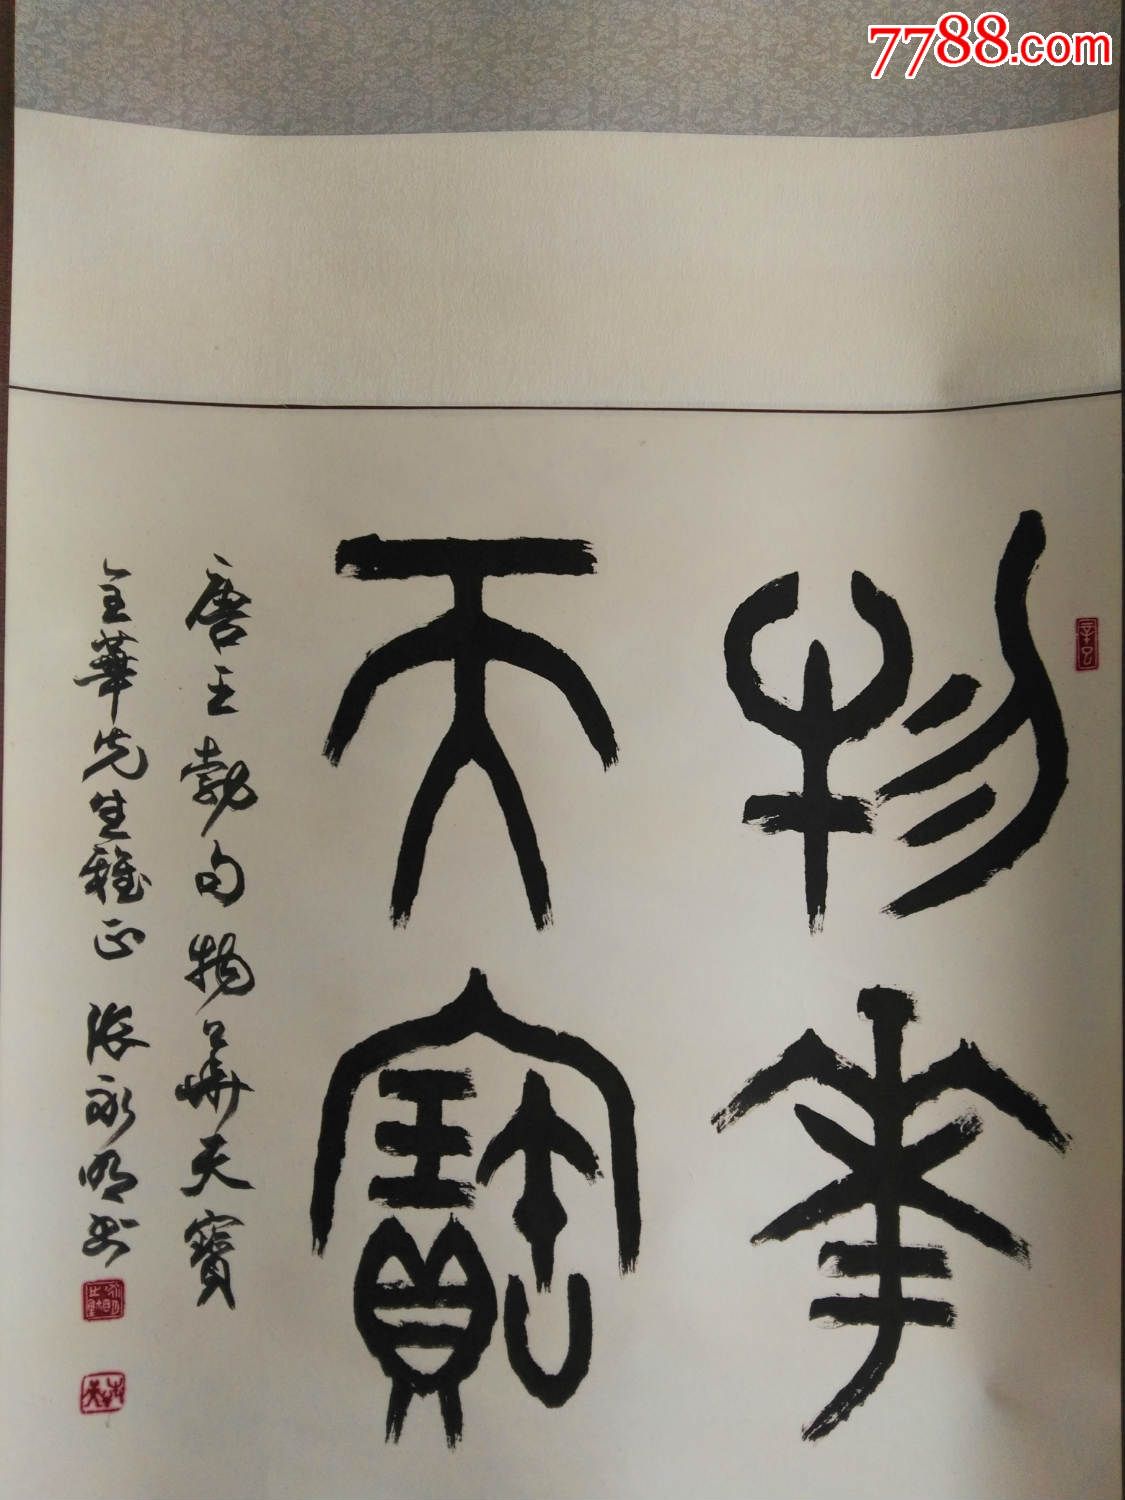 7788.com
物華
天寶
唐王勃句物華天寶
全華先生雅正 張永明书